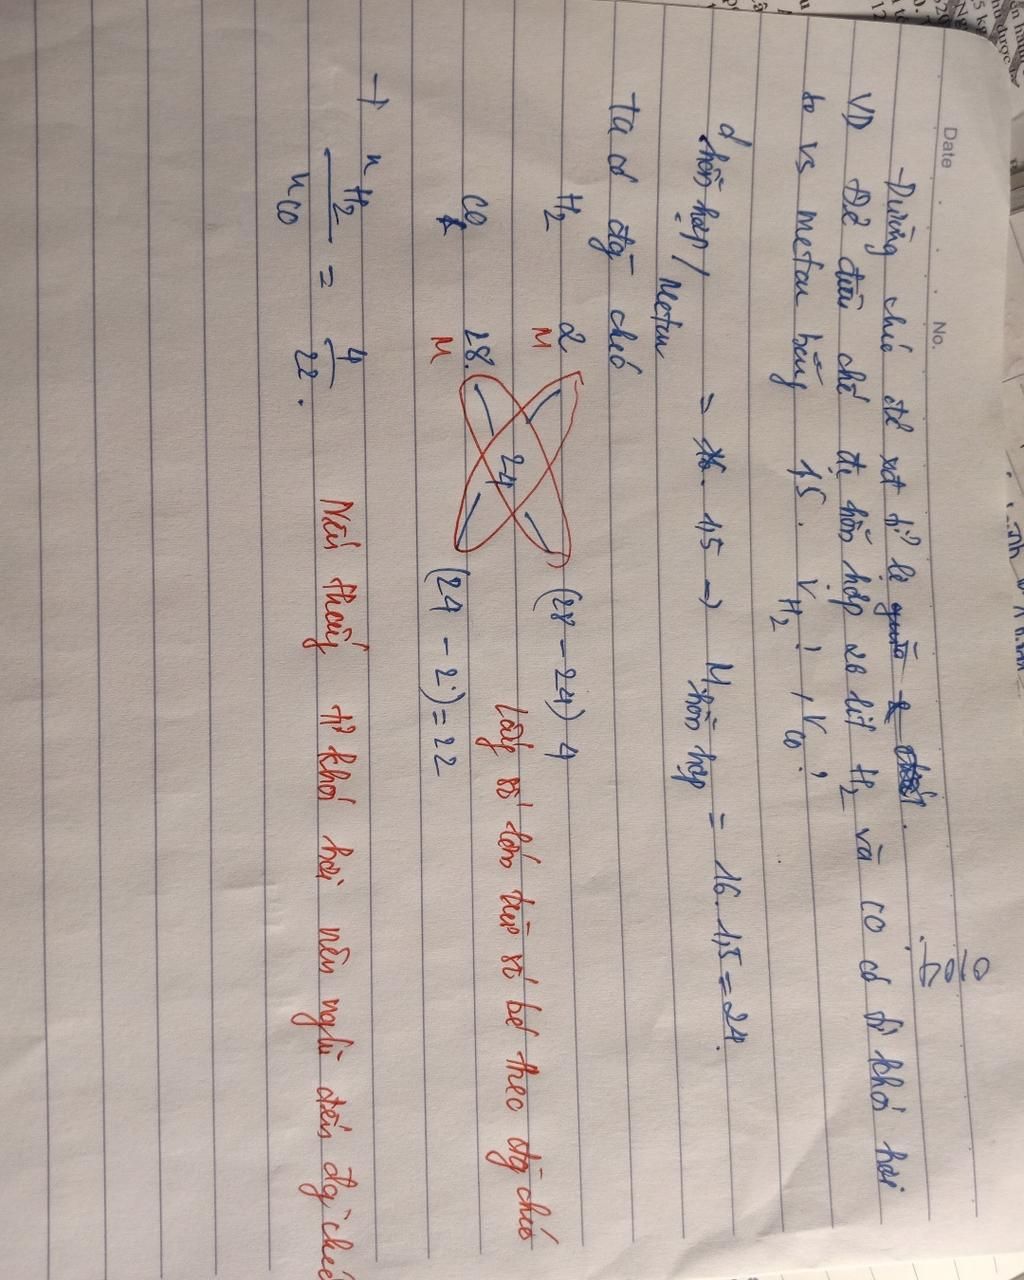 Date
No.
- Đường chéo để xđ tỉ lệ
VD Để điều chế đc hỗn hợp 26 lít H2 và CO có tỉ khối hơi
so vs metan bằng 1,5. VH2?, VCO?
d hỗn hợp / Metan = 1,5 → M hỗn hợp = 16.1,5 = 24.
ta có đg- chéo
H2 2 (28 - 24) 4
M
24
CO 28. (24 - 2) = 22
M
Lấy số lớn trừ số bé theo đg chéo
→ nH2 / nCO = 4 / 22.
Nếu thấy tỉ khối hơi nên nghĩ đến đg chéo